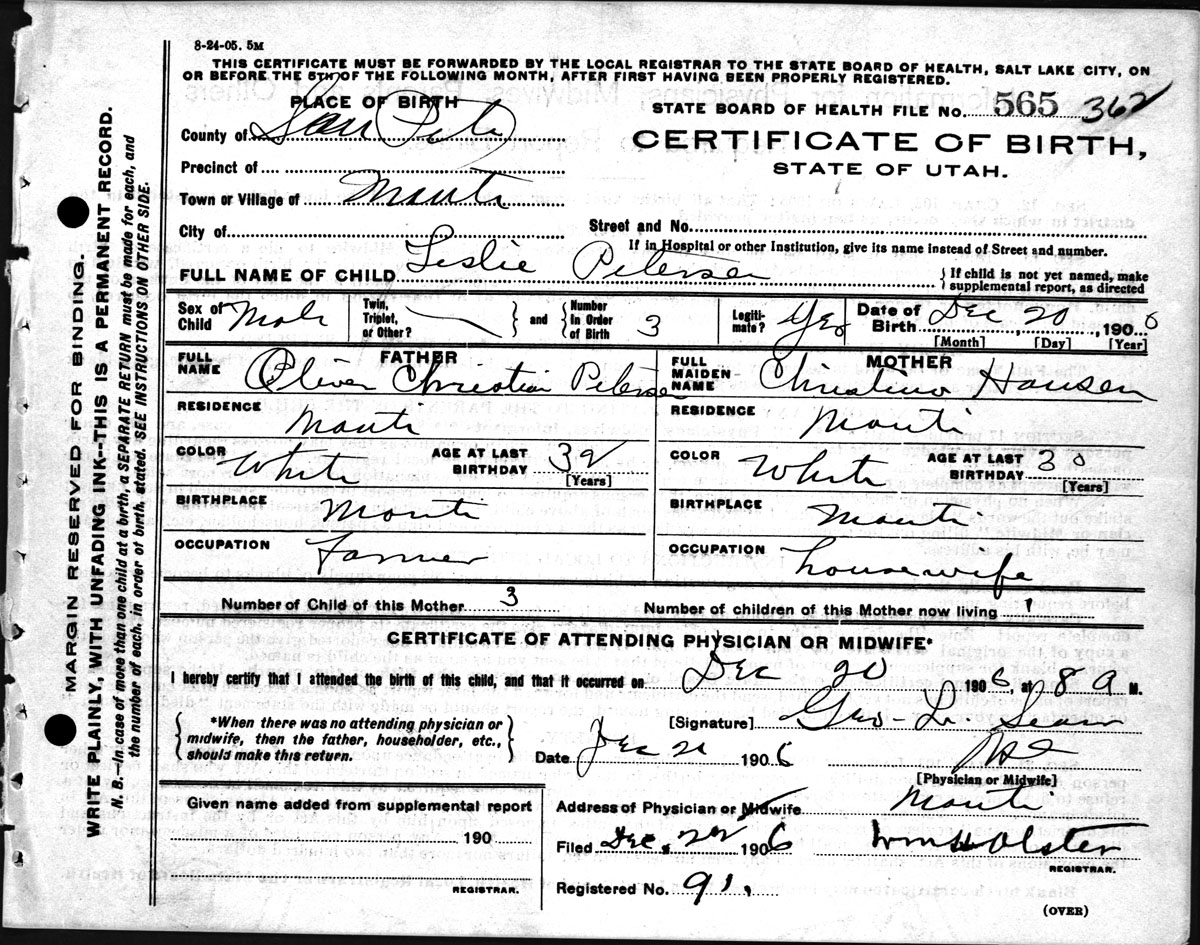 8-24-05. 5M
THIS CERTIFICATE MUST BE FORWARDED BY THE LOCAL REGISTRAR TO THE STATE BOARD OF HEALTH, SALT LAKE CITY, ON
OR BEFORE THE 5TH OF THE FOLLOWING MONTH, AFTER FIRST HAVING BEEN PROPERLY REGISTERED.
PLACE OF BIRTH
STATE BOARD OF HEALTH FILE NO. 565 362
County of San Pete
CERTIFICATE OF BIRTH,
STATE OF UTAH.
Precinct of
Town or Village of Manti
City of Street and No.
If in Hospital or other Institution, give its name instead of Street and number.
FULL NAME OF CHILD Leslie Petersen { If child is not yet named, make supplemental report, as directed
Sex of Child Male Twin, Triplet, or Other? } and { Number in Order of Birth 3 Legiti-mate? Yes Date of Birth Dec 20, 1906
[Month] [Day] [Year]
FATHER MOTHER
FULL NAME Oliver Christian Petersen FULL MAIDEN NAME Christine Hansen
RESIDENCE Manti RESIDENCE Manti
COLOR White AGE AT LAST BIRTHDAY 32 [Years] COLOR White AGE AT LAST BIRTHDAY 30 [Years]
BIRTHPLACE Manti BIRTHPLACE Manti
OCCUPATION Farmer OCCUPATION housewife
Number of Child of this Mother 3 Number of children of this Mother now living 1
CERTIFICATE OF ATTENDING PHYSICIAN OR MIDWIFE*
I hereby certify that I attended the birth of this child, and that it occurred on Dec 20 1906, at 8 a M.
{ *When there was no attending physician or midwife, then the father, householder, etc., should make this return. }
[Signature] Geo. L.
Date Dec 21 1906
[Physician or Midwife]
Given name added from supplemental report
190
REGISTRAR.
Address of Physician or Midwife Manti
Filed Dec. 22 1906 Wm H Olsten
REGISTRAR.
Registered No. 91.
(OVER)
MARGIN RESERVED FOR BINDING.
WRITE PLAINLY, WITH UNFADING INK--THIS IS A PERMANENT RECORD.
N. B.—In case of more than one child at a birth, a SEPARATE RETURN must be made for each, and
the number of each, in order of birth, stated. SEE INSTRUCTIONS ON OTHER SIDE.